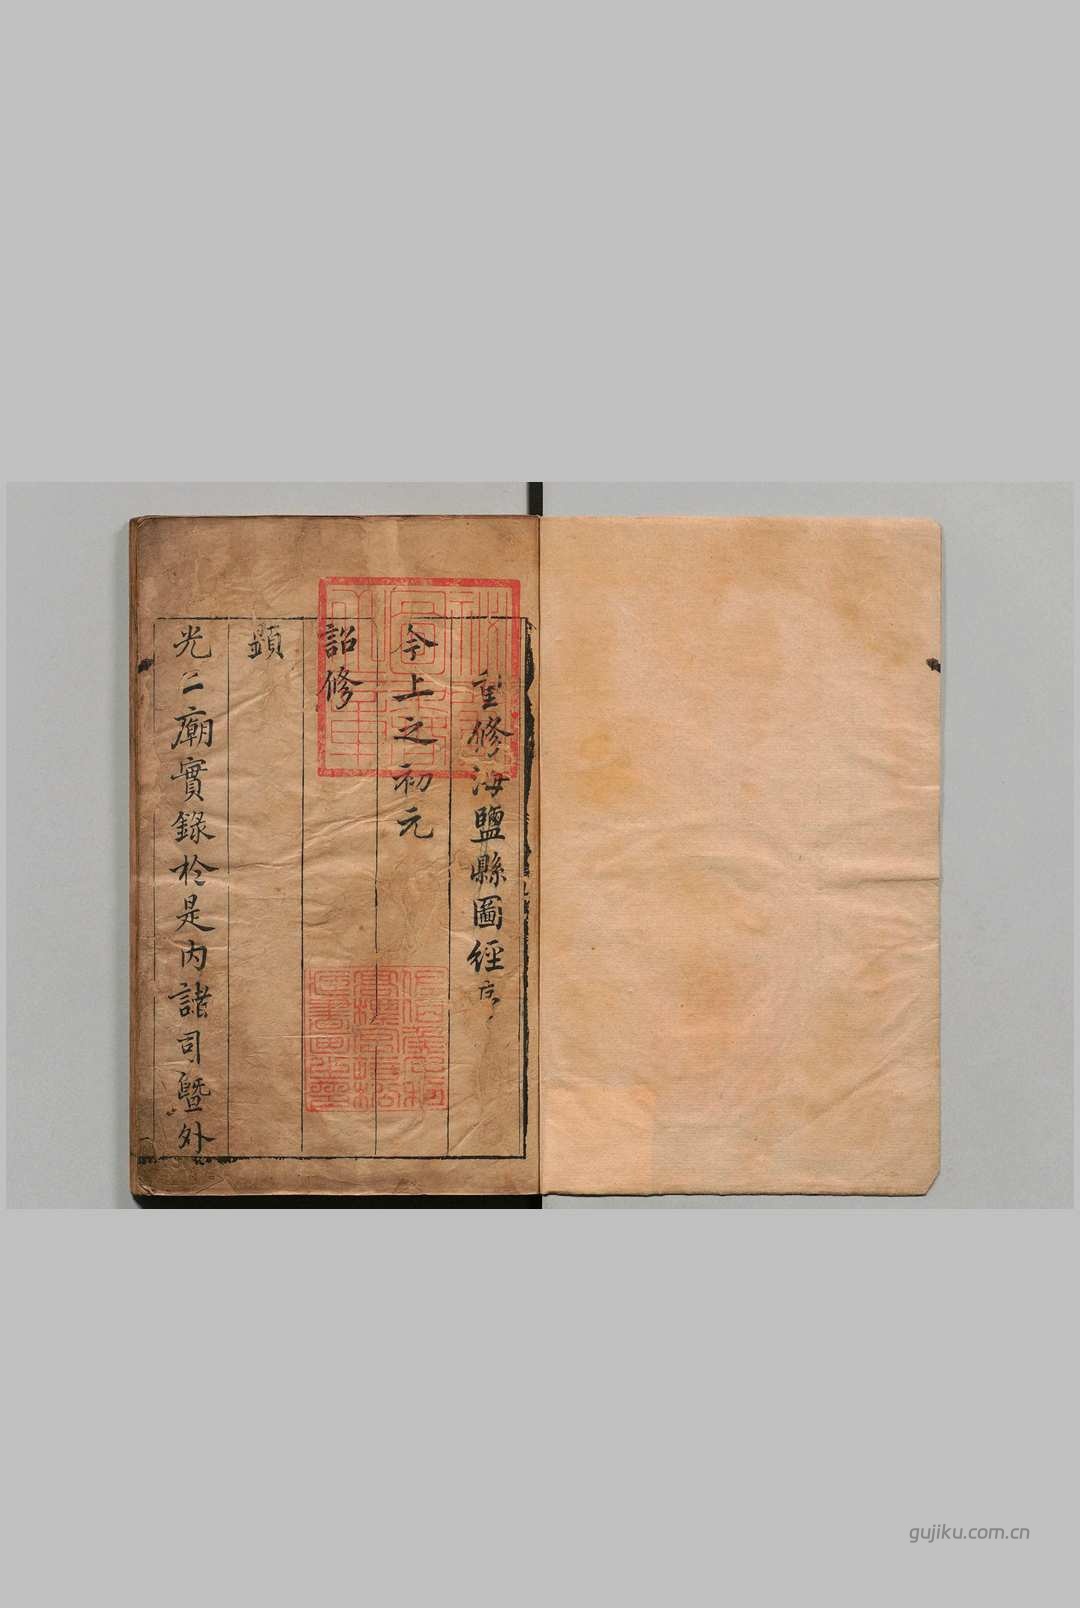 重修海鹽縣圖經序
今上之初元
詔修
顯
光二廟實錄於是內諸司暨外
gujiku.com.cn